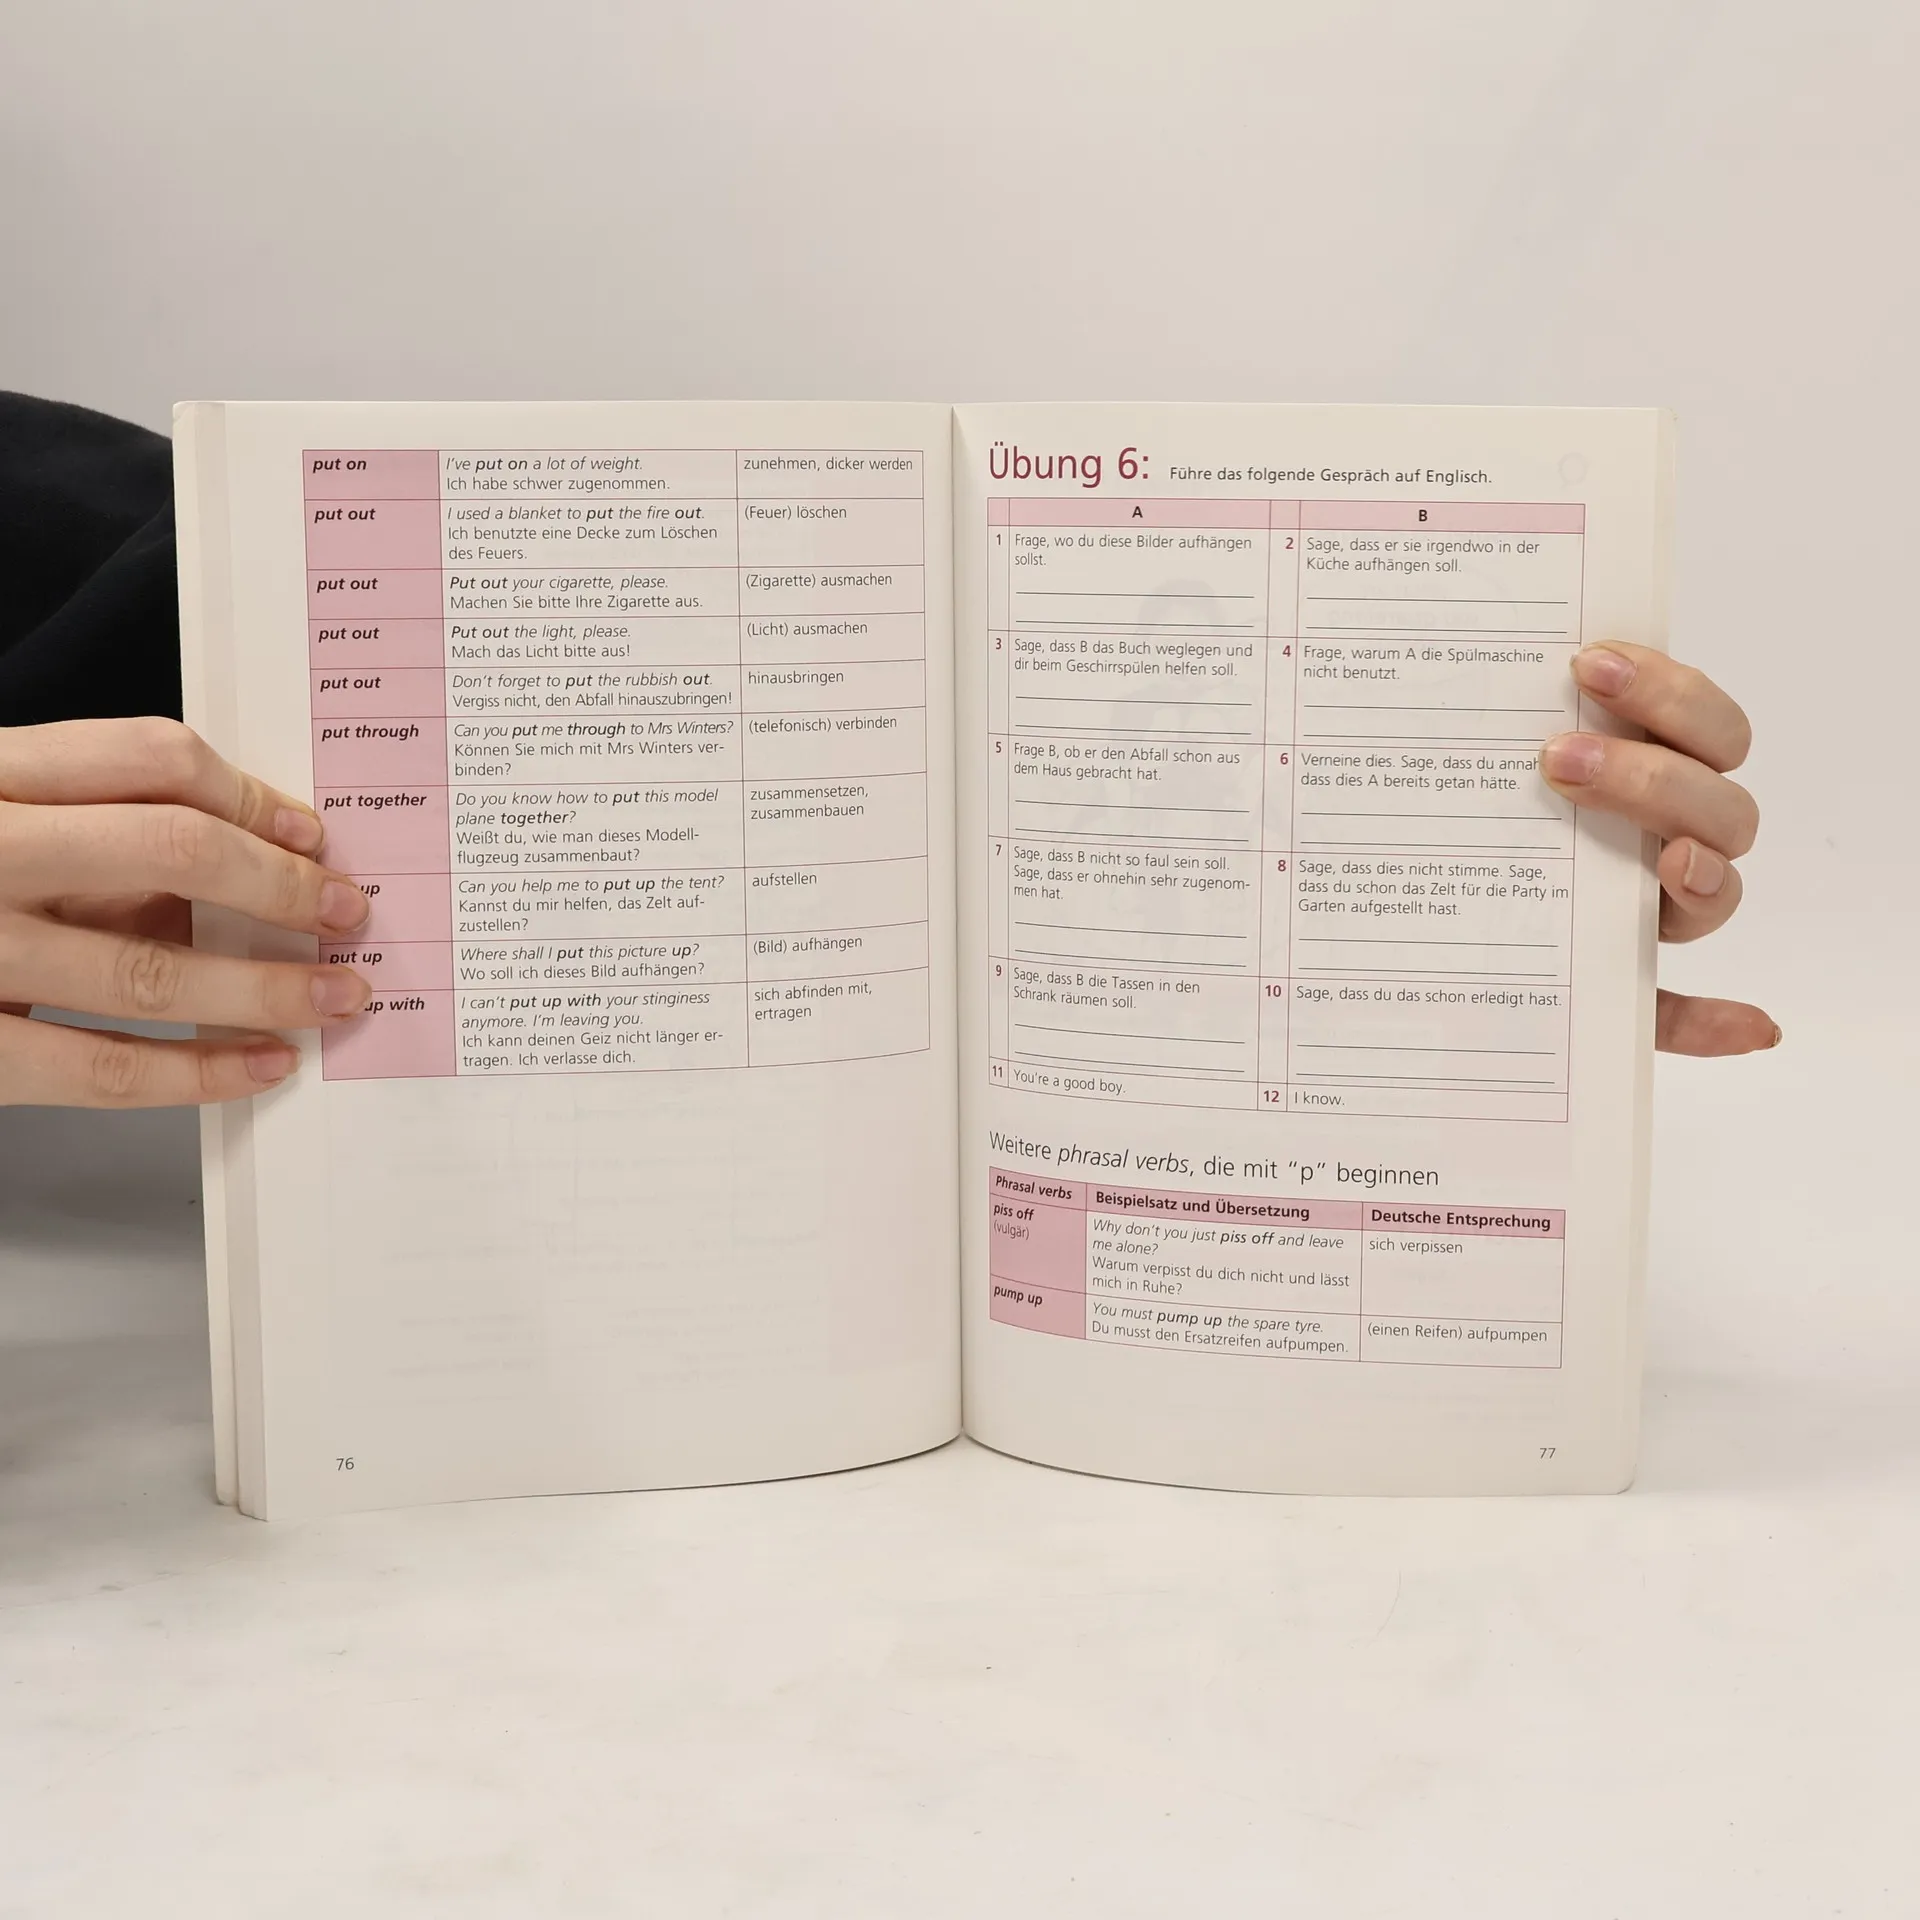 put on
I've put on a lot of weight.
Ich habe schwer zugenommen.
zunehmen, dicker werden
put out
I used a blanket to put the fire out.
Ich benutzte eine Decke zum Löschen
des Feuers.
(Feuer) löschen
put out
Put out your cigarette, please.
Machen Sie bitte Ihre Zigarette aus.
(Zigarette) ausmachen
put out
Put out the light, please.
Mach das Licht bitte aus!
(Licht) ausmachen
put out
Don't forget to put the rubbish out.
Vergiss nicht, den Abfall hinauszubringen!
hinausbringen
put through
Can you put me through to Mrs Winters?
Können Sie mich mit Mrs Winters ver-
binden?
(telefonisch) verbinden
put together
Do you know how to put this model
plane together?
Weißt du, wie man dieses Modell-
flugzeug zusammenbaut?
zusammensetzen,
zusammenbauen
up
Can you help me to put up the tent?
Kannst du mir helfen, das Zelt auf-
zustellen?
aufstellen
put up
Where shall I put this picture up?
Wo soll ich dieses Bild aufhängen?
(Bild) aufhängen
up with
I can't put up with your stinginess
anymore. I'm leaving you.
Ich kann deinen Geiz nicht länger er-
tragen. Ich verlasse dich.
sich abfinden mit,
ertragen
76
Übung 6: Führe das folgende Gespräch auf Englisch.
A B
1 Frage, wo du diese Bilder aufhängen
sollst.
2 Sage, dass er sie irgendwo in der
Küche aufhängen soll.
3 Sage, dass B das Buch weglegen und
dir beim Geschirrspülen helfen soll.
4 Frage, warum A die Spülmaschine
nicht benutzt.
5 Frage B, ob er den Abfall schon aus
dem Haus gebracht hat.
6 Verneine dies. Sage, dass du annah
dass dies A bereits getan hätte.
7 Sage, dass B nicht so faul sein soll.
Sage, dass er ohnehin sehr zugenom-
men hat.
8 Sage, dass dies nicht stimme. Sage,
dass du schon das Zelt für die Party im
Garten aufgestellt hast.
9 Sage, dass B die Tassen in den
Schrank räumen soll.
10 Sage, dass du das schon erledigt hast.
11 You're a good boy.
12 I know.
Weitere phrasal verbs, die mit "p" beginnen
Phrasal verbs Beispielsatz und Übersetzung Deutsche Entsprechung
piss off
(vulgär)
Why don't you just piss off and leave
me alone?
Warum verpisst du dich nicht und lässt
mich in Ruhe?
sich verpissen
pump up
You must pump up the spare tyre.
Du musst den Ersatzreifen aufpumpen.
(einen Reifen) aufpumpen
77